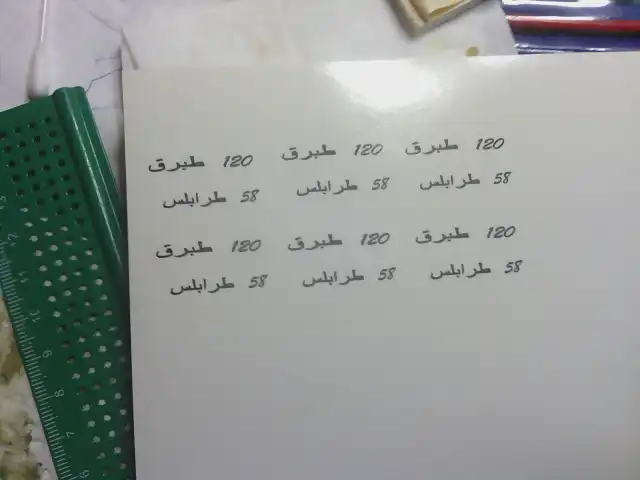 120 طبرق 120 طبرق 120 طبرق
58 طرابلس 58 طرابلس 58 طرابلس
120 طبرق 120 طبرق 120 طبرق
58 طرابلس 58 طرابلس 58 طرابلس